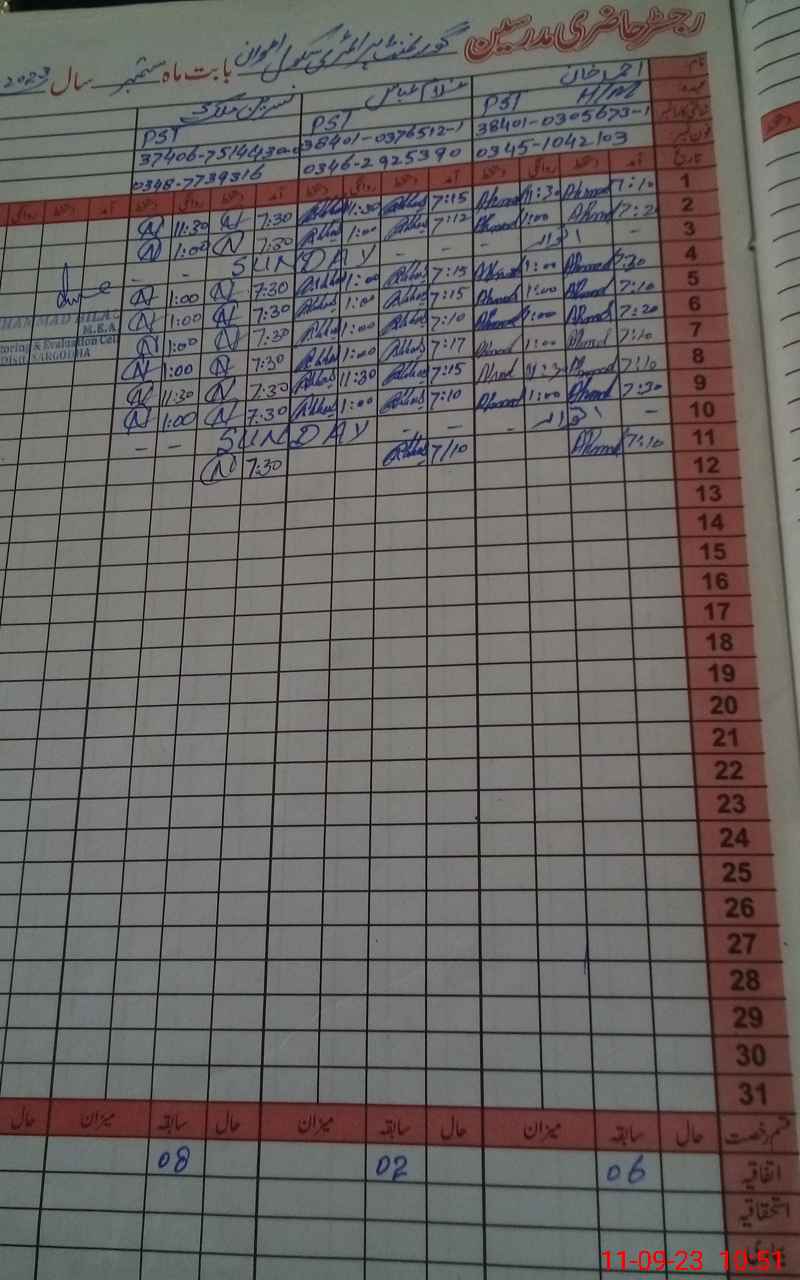 رجسٹر حاضری مدرسین گورنمنٹ پرائمری سکول اعوان بابت ماہ ستمبر سال 2023
نام احمد خان غلام عباس
عہدہ PST H/M PST PST
38401-0305673-1 38401-0376512-1
فون نمبر 0345-1042103 0346-2925390 0348-7739316
تاریخ آمد دستخط روانگی دستخط آمد دستخط روانگی دستخط آمد دستخط روانگی دستخط آمد دستخط روانگی
1 7:10 Ahmad 11:30 Ahmad 7:15 Abbas 11:30 Abbas 7:30 N 11:30 N
2 Ahmad 1:00 Ahmad 7:12 Abbas 1:00 Abbas 7:30 N 1:00 N
3 – اتوار – – – SUNDAY – –
4 7:30 Ahmad 1:00 Ahmad 7:15 Abbas 1:00 Abbas 7:30 N 1:00 N
5 7:10 Ahmad 1:00 Ahmad 7:15 Abbas 1:00 Abbas 7:30 N 1:00 N
6 7:20 Ahmad 1:00 Ahmad 7:10 Abbas 1:00 Abbas 7:30 N 1:00 N
7 7:10 Ahmad 1:00 Ahmad 7:17 Abbas 1:00 Abbas 7:30 N 1:00 N
8 7:10 Ahmad 11:30 Ahmad 7:15 Abbas 11:30 Abbas 7:30 N 11:30 N
9 7:30 Ahmad 1:00 Ahmad 7:10 Abbas 1:00 Abbas 7:30 N 1:00 N
10 – اتوار – – – SUNDAY – –
11 7:10 Ahmad 7/10 Abbas 7:30 N
12
13
14
15
16
17
18
19
20
21
22
23
24
25
26
27
28
29
30
31
MUHAMMAD BILAL
M.E.A
Monitoring & Evaluation Cell
DISTT SARGODHA
قسم رخصت حال سابقہ میزان حال سابقہ میزان حال سابقہ میزان حال
اتفاقیہ 06 02 08
استحقاقیہ
11-09-23 10:51